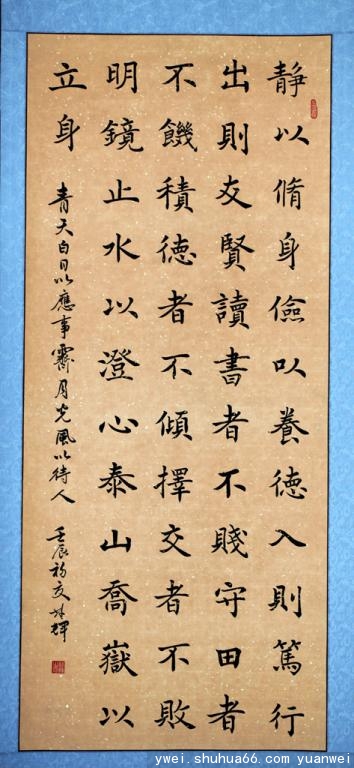 静以脩身儉以養德入則篤行
出則友賢讀書者不賤守田者
不饑積德者不傾擇交者不敗
明鏡止水以澄心泰山喬嶽以
立身
青天白日以應事霽月光風以待人
壬辰初夏
ywei.shuhua66.com yuanwei